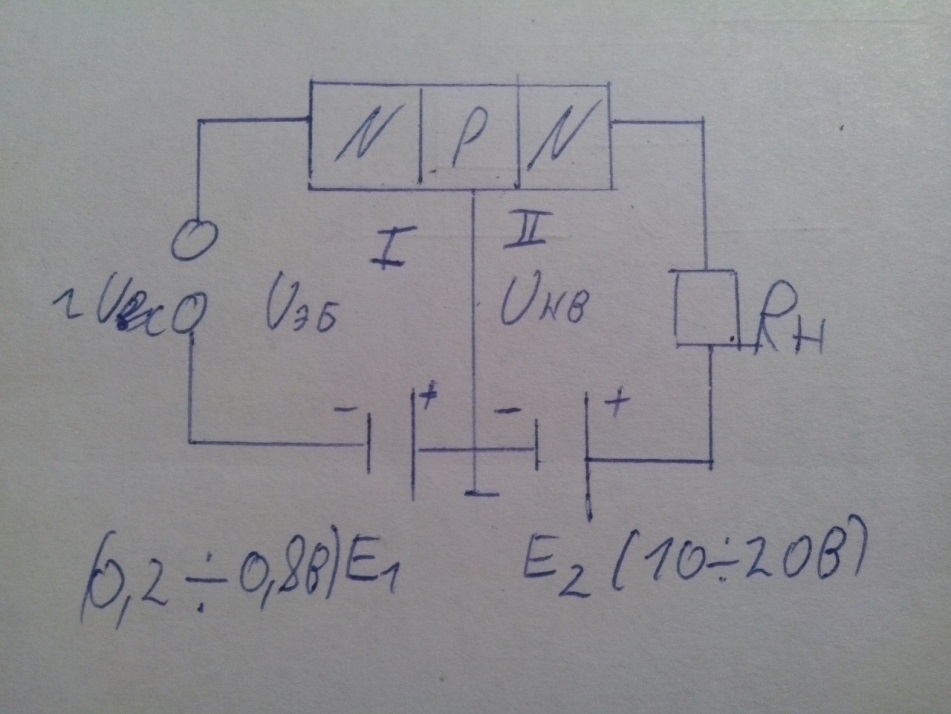 N P N
I II
~Uвх UэБ UкБ RН
- + - +
(0,2÷0,8В)E₁ E₂(10÷20В)